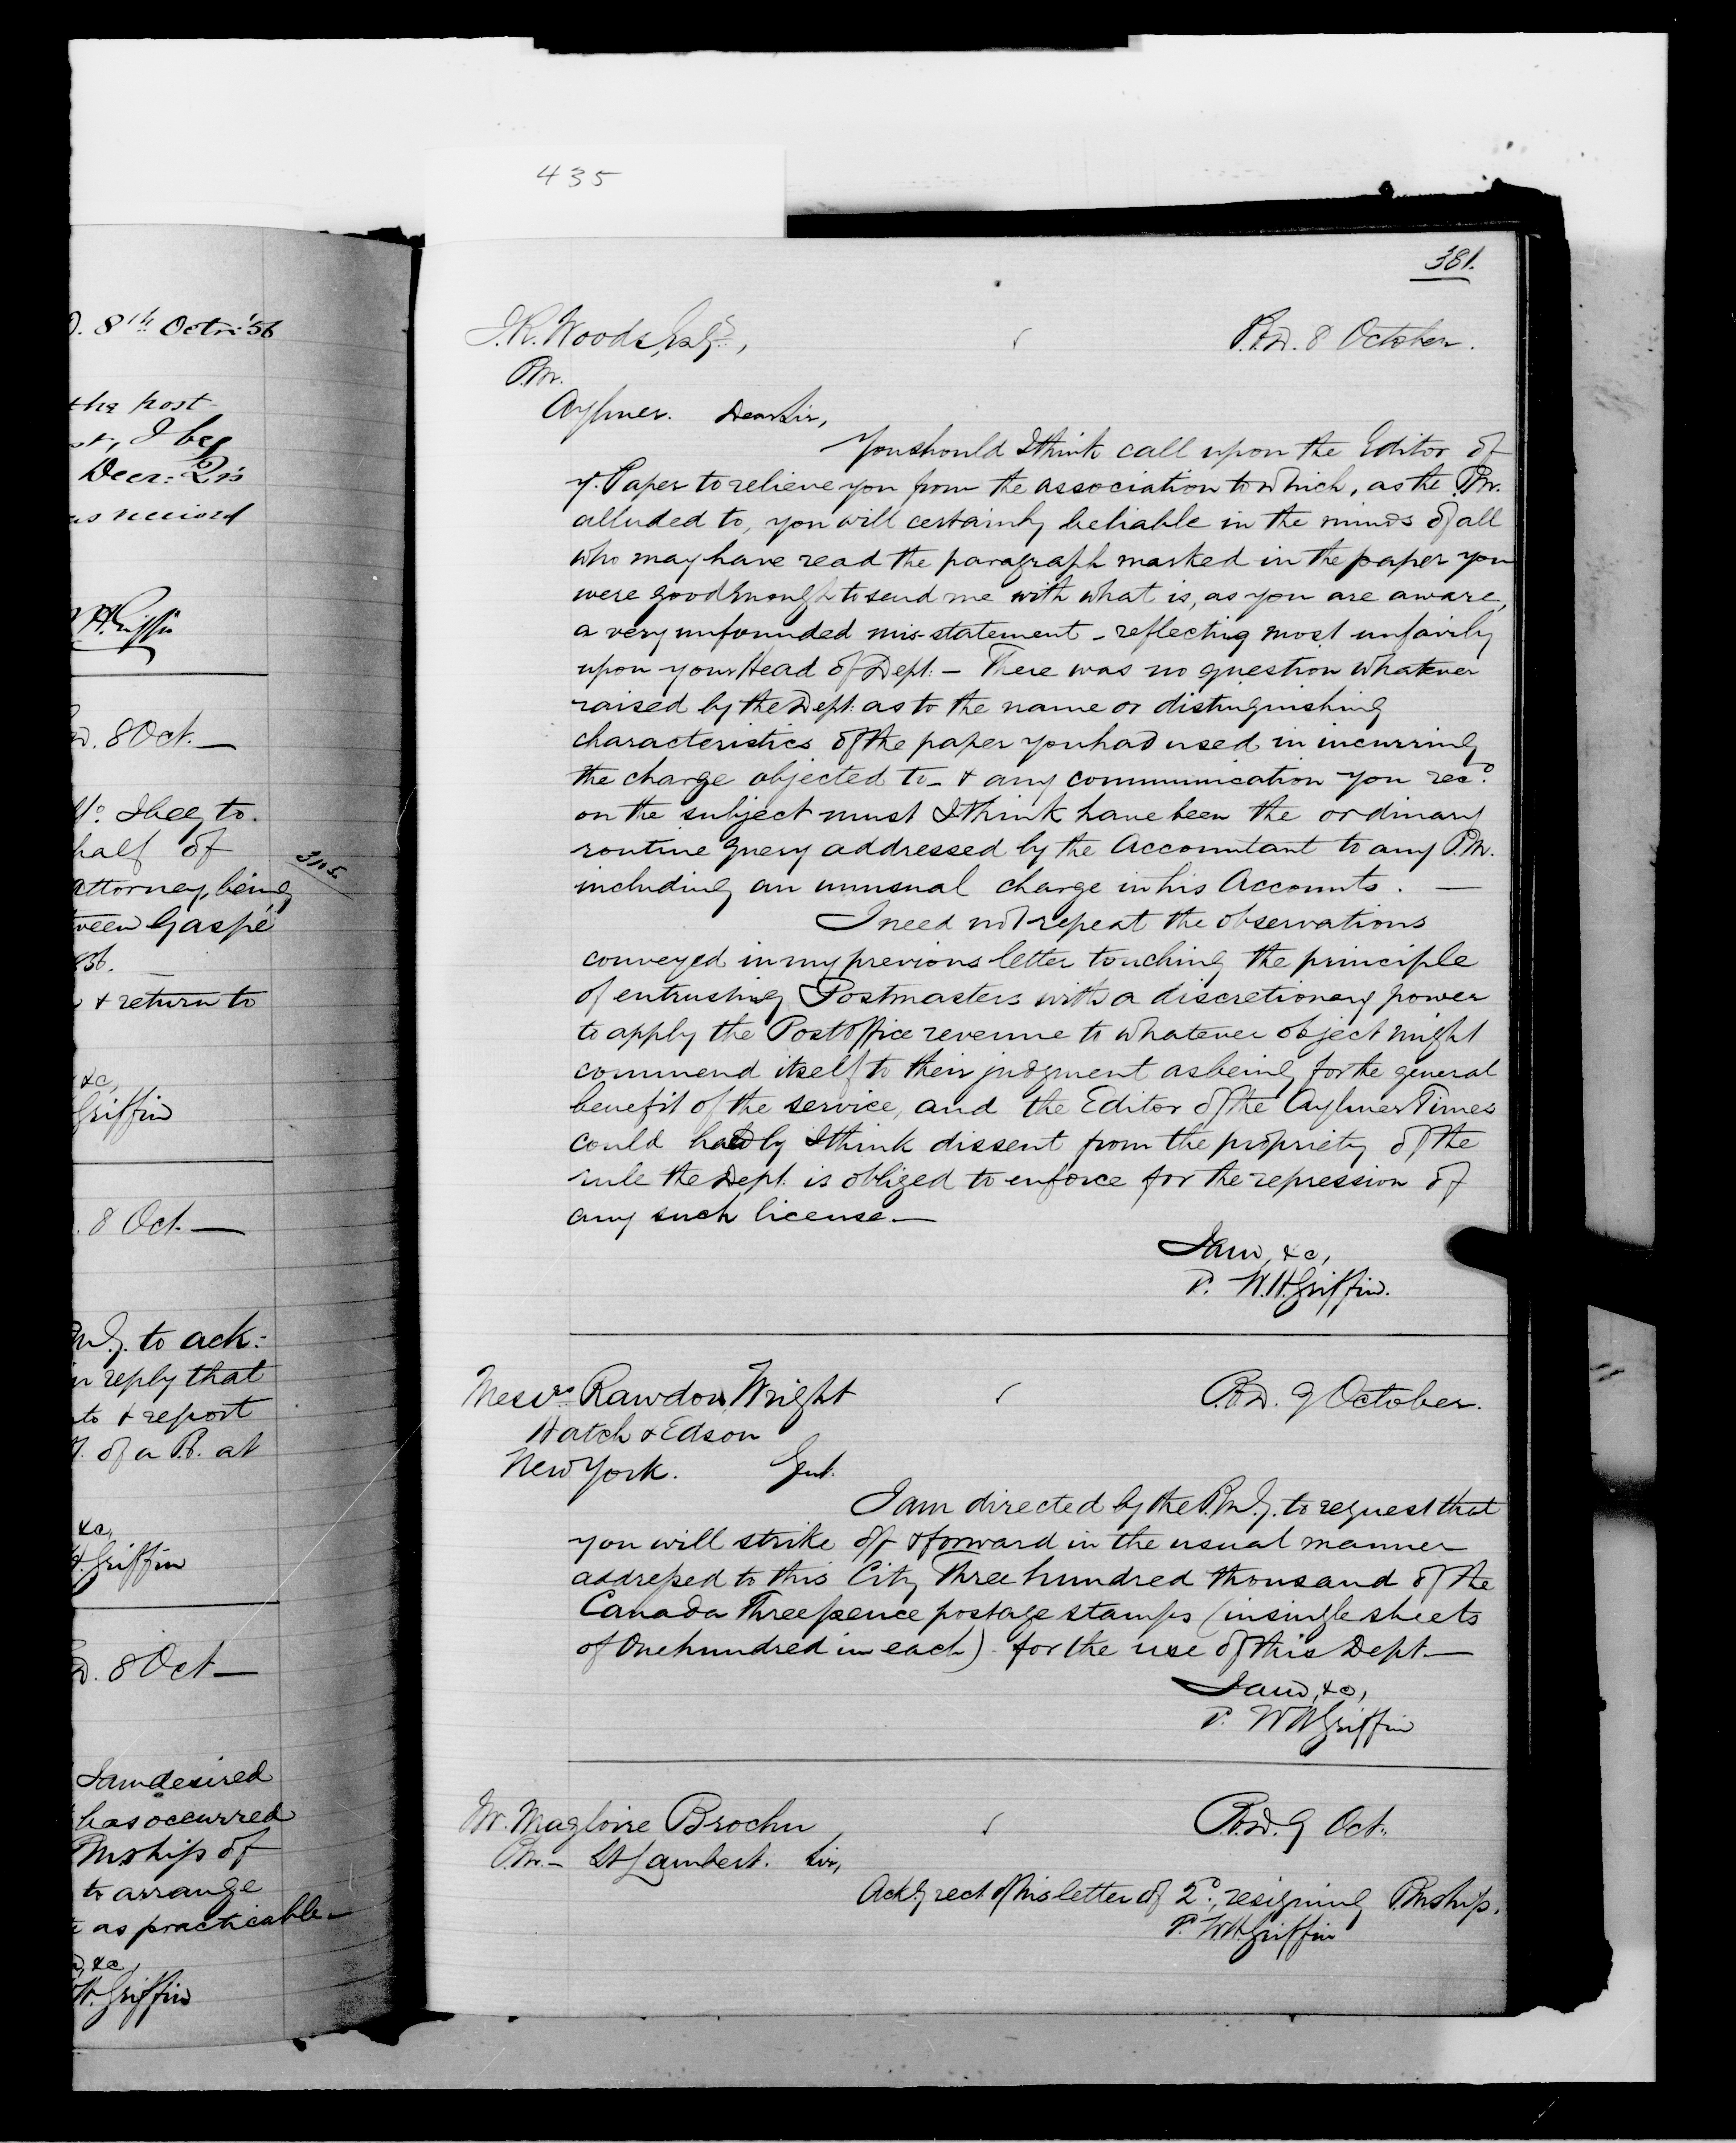 435
D. 8th Octr: '56
the post
st, I beg
Decr: Qr's
as record
H. Griffin
D. 8 Oct. —
I beg to
half of
attorney, being
3115
ween Gaspé
856. —
& return to
&c,
Griffin
. 8 Oct. —
P.M.G. to ack:
in reply that
to & report
of a P.O. at
&c,
H. Griffin
D. 8 Oct —
I am desired
has occurred
Pmship of
to arrange
as practicable —
&c,
H. Griffin
381.
J. R. Woods, Esqr., P.O.D. 8 October.
P.M.
Aylmer. Dear Sir,
You should I think call upon the Editor of
yr. Paper to relieve you from the association to which, as the P.M.
alluded to, you will certainly be liable in the minds of all
who may have read the paragraph marked in the paper you
were good enough to send me with what is, as you are aware,
a very unfounded mis-statement - reflecting most unfairly
upon your Head of Dept. — There was no question whatever
raised by the Dept. as to the name or distinguishing
characteristics of the paper you had used in incurring
the charge objected to - & any communication you recd.
on the subject must I think have been the ordinary
routine query addressed by the Accountant to any P.M.
including an unusual charge in his Accounts. —
I need not repeat the observations
conveyed in my previous letter touching the principle
of entrusting Postmasters with a discretionary power
to apply the Post Office revenue to whatever object might
commend itself to their judgment as being for the general
benefit of the service, and the Editor of the Aylmer Times
could hardly I think dissent from the propriety of the
rule the Dept. is obliged to enforce for the repression of
any such license. —
I am, &c,
W. H. Griffin.
Messrs Rawdon, Wright P.O.D. 9 October.
Hatch & Edson
New York. Gent.
I am directed by the P.M.G. to request that
you will strike off & forward in the usual manner
addressed to this City Three hundred thousand of the
Canada Threepence postage stamps (in single sheets
of One hundred in each) for the use of this Dept. —
I am, &c,
W H Griffin
Mr. Magloire Brochu P.O.D. 9 Oct.
P.M. — St Lambert. Sir,
Ackg rect of his letter of 2d., resigning Pmship.
W. H. Griffin